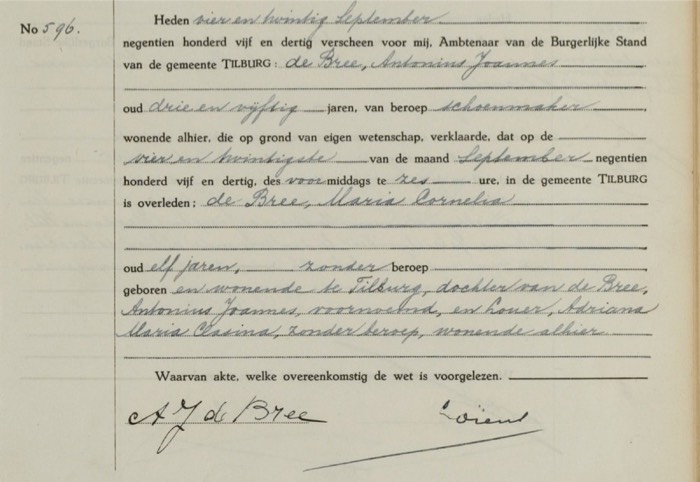 No 596.
Heden vier en twintig September
negentien honderd vijf en dertig verscheen voor mij, Ambtenaar van de Burgerlijke Stand
van de gemeente TILBURG: de Bree, Antonius Joannes
oud drie en vijftig jaren, van beroep schoenmaker,
wonende alhier, die op grond van eigen wetenschap, verklaarde, dat op de
vier en twintigste van de maand September negentien
honderd vijf en dertig, des voormiddags te zes ure, in de gemeente TILBURG
is overleden: de Bree, Maria Cornelia
oud elf jaren, zonder beroep
geboren en wonende te Tilburg, dochter van de Bree,
Antonius Joannes, voornoemd, en Louer, Adriana
Maria Clasina, zonder beroep, wonende alhier
Waarvan akte, welke overeenkomstig de wet is voorgelezen.
A J de Bree